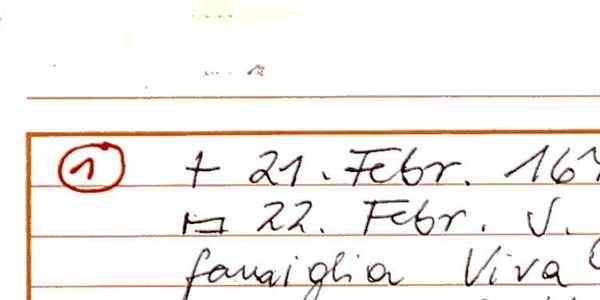 ① + 21. Febr. 16
22. Febr. V.
famiglia Viva